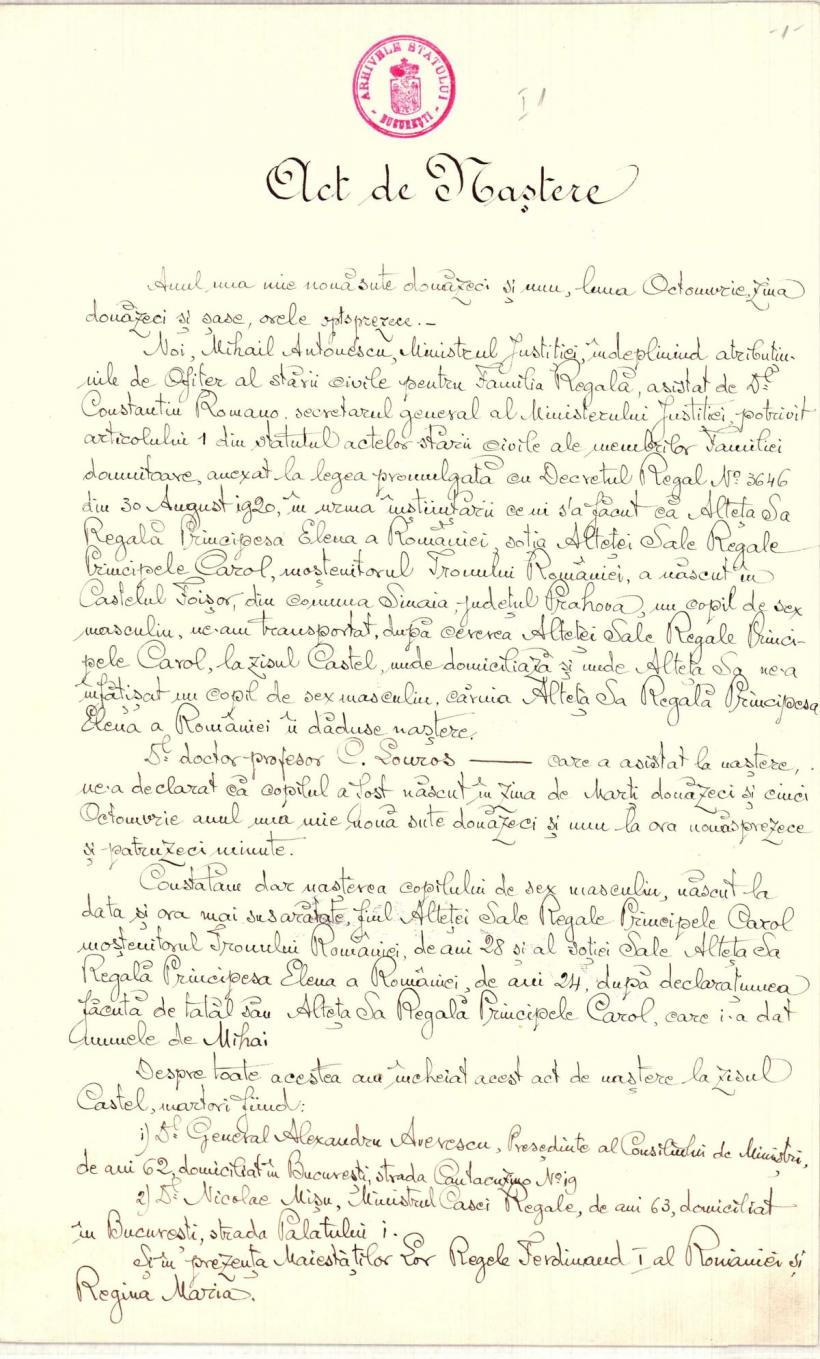 -1-
ARHIVELE STATULUI
- BUCUREȘTI -
I 1
Act de Naștere
Anul una mie nouă sute douăzeci și unu, luna Octomvrie, ziua
douăzeci și șase, orele optsprezece.-
Noi, Mihail Antonescu, Ministrul Justiției, îndeplinind atribuțiu-
nile de Ofițer al stării civile pentru Familia Regală, asistat de Dl.
Constantin Romano, secretarul general al Ministerului Justiției, potrivit
articolului 1 din statutul actelor stării civile ale membrilor Familiei
domnitoare, anexat la legea promulgată cu Decretul Regal No. 3646
din 30 August 1920, în urma înștiințării ce ni s'a făcut că Alteța Sa
Regală Principesa Elena a României, soția Alteței Sale Regale
Principele Carol, moștenitorul Tronului României, a născut în
Castelul Foișor, din comuna Sinaia, județul Prahova, un copil de sex
masculin, ne-am transportat, după cererea Alteței Sale Regale Princi-
pele Carol, la zisul Castel, unde domiciliază și unde Alteța Sa ne-a
înfățișat un copil de sex masculin, căruia Alteța Sa Regală Principesa
Elena a României îi dăduse naștere.
Dl. doctor-profesor C. Louros —— care a asistat la naștere,
ne-a declarat că copilul a fost născut în ziua de Marți douăzeci și cinci
Octomvrie anul una mie nouă sute douăzeci și unu la ora nouăsprezece
și patruzeci minute.
Constatăm dar nașterea copilului de sex masculin, născut la
data și ora mai susarătate, fiul Alteței Sale Regale Principele Carol
moștenitorul Tronului României, de ani 28 și al soției Sale Alteța Sa
Regală Principesa Elena a României, de ani 24, după declarațiunea
făcută de tatăl său Alteța Sa Regală Principele Carol, care i-a dat
numele de Mihai
Despre toate acestea am încheiat acest act de naștere la zisul
Castel, martori fiind:
1) Dl. General Alexandru Averescu, Președinte al Consiliului de Miniștri,
de ani 62, domiciliat în București, strada Cantacuzino No. 19
2) Dl. Nicolae Mișu, Ministrul Casei Regale, de ani 63, domiciliat
în București, strada Palatului 1.
Și în prezența Maiestăților Lor Regele Ferdinand I al României și
Regina Maria.